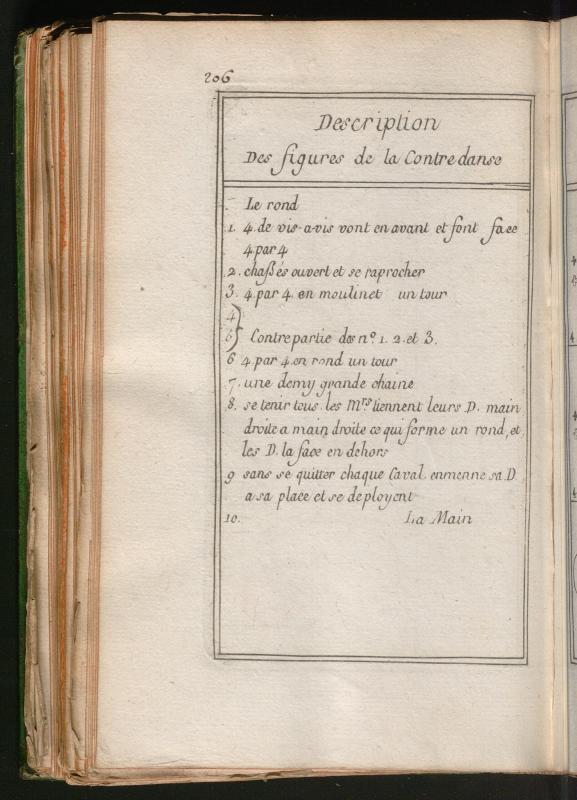 206
Description
Des figures de la Contredanse
Le rond
1. 4. de vis-a-vis vont en avant et font face
4 par 4
2. chaßés ouvert et se raprocher
3. 4. par 4. en moulinet un tour
4
5 Contrepartie des nº. 1. 2. et 3.
6 4. par 4. en rond un tour
7. une demy grande chaine
8. se tenir tous. les Mrs tiennent leurs D. main
droite a main droite ce qui forme un rond, et
les D. la face en dehors
9 sans se quitter chaque Caval. enmenne sa D.
a sa place et se deployent
10. La Main